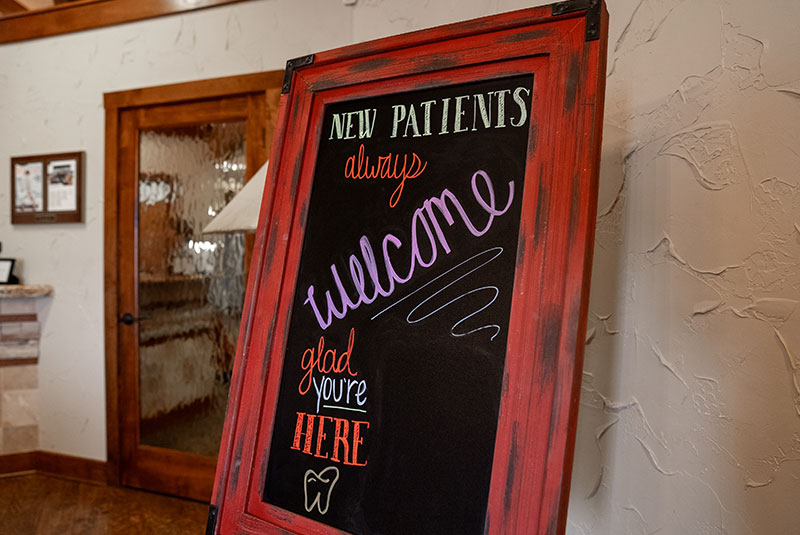 NEW PATIENTS
always
welcome
glad
you're
HERE